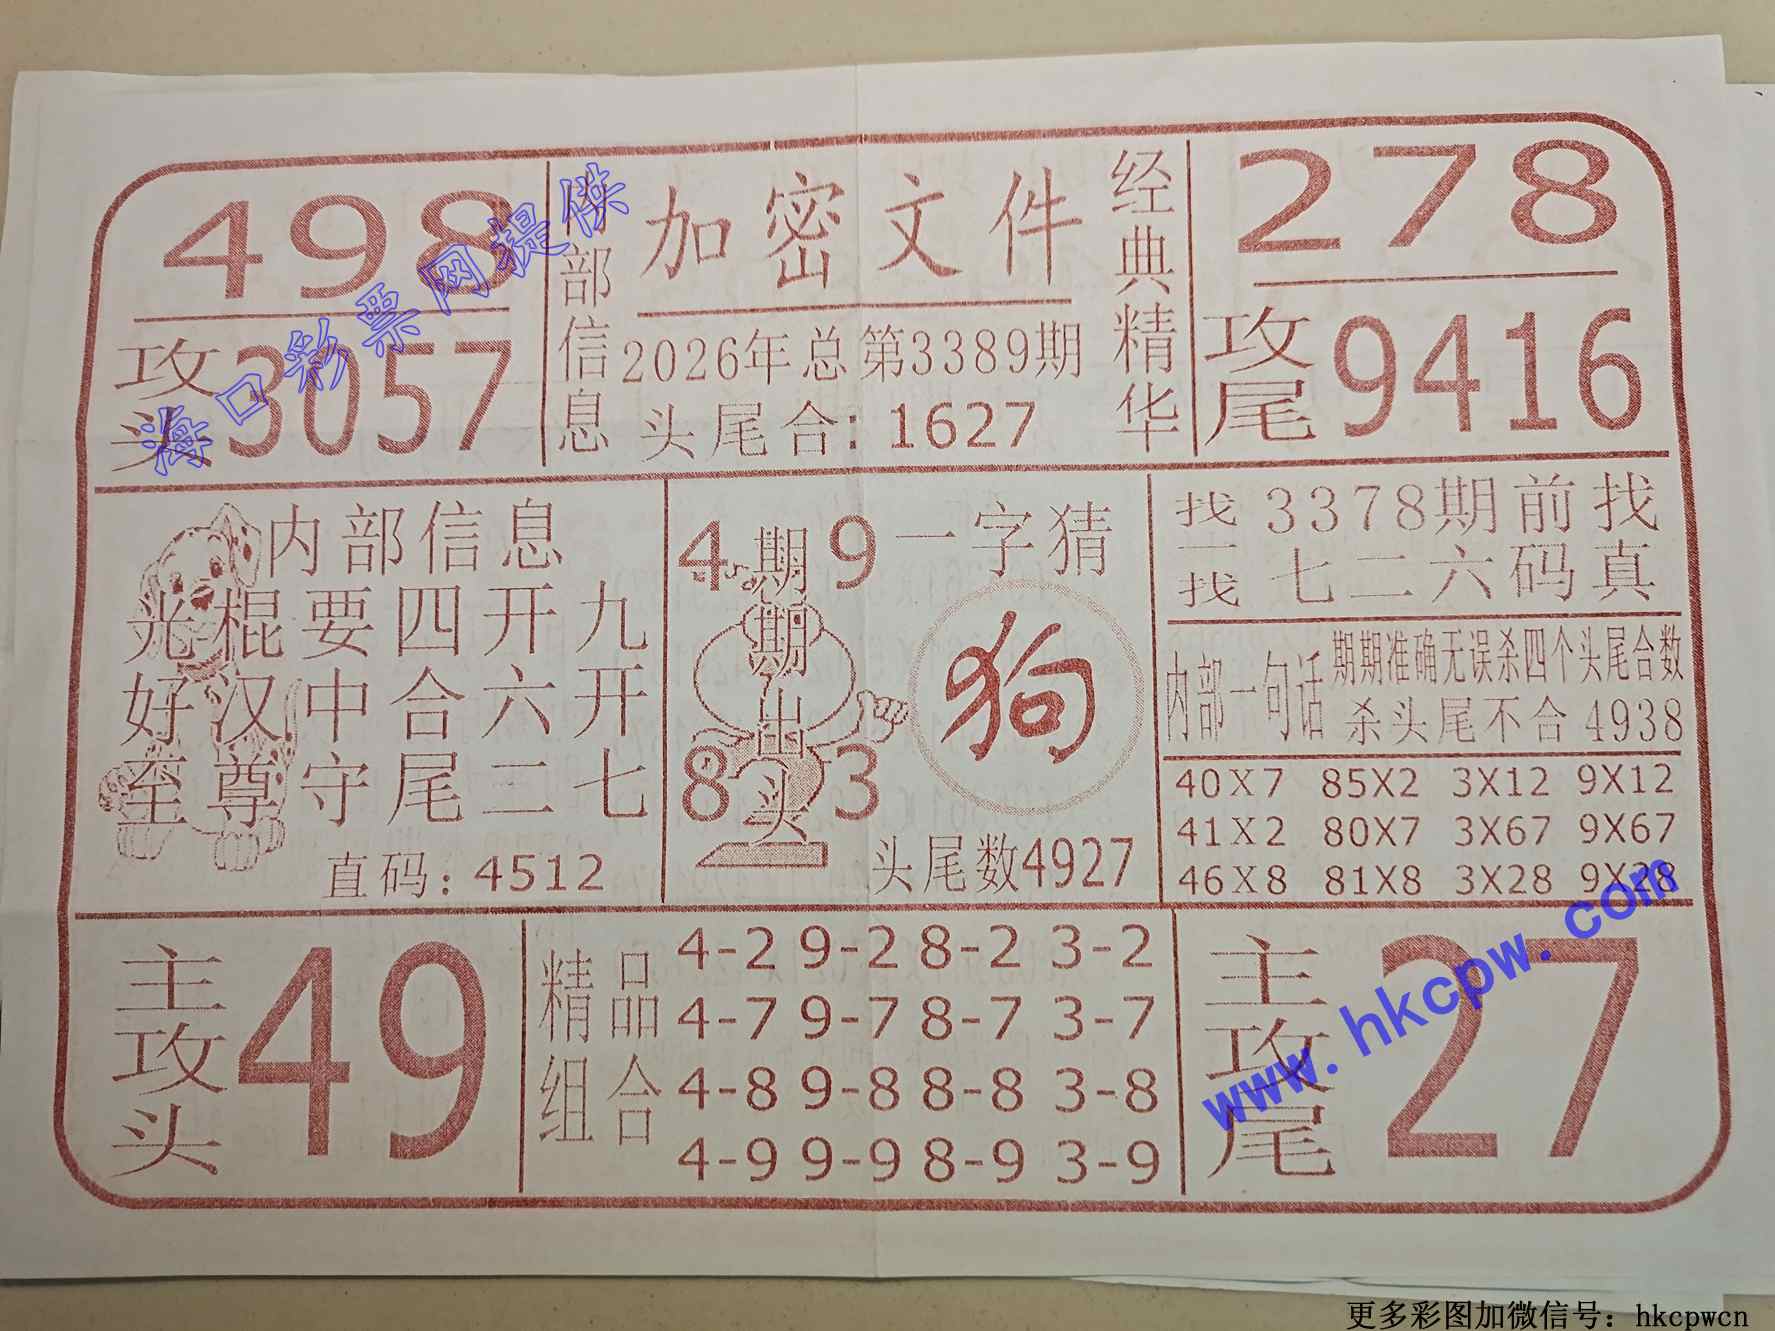 498
攻头 3057
内部信息
加密文件
2026年总第3389期
头尾合: 1627
经典精华
278
攻尾 9416
海口彩票网提供
内部信息
光棍要四开九
好汉中合六开
至尊守尾二七
直码: 4512
4 9
期期出头
8 3
一字猜
狗
头尾数4927
找一找
3378期前找
七二六码真
内部一句话
期期准确无误杀四个头尾合数
杀头尾不合 4938
40X7 85X2 3X12 9X12
41X2 80X7 3X67 9X67
46X8 81X8 3X28 9X28
主攻头 49
精品组合
4-2 9-2 8-2 3-2
4-7 9-7 8-7 3-7
4-8 9-8 8-8 3-8
4-9 9-9 8-9 3-9
主攻尾 27
www.hkcpw.com
更多彩图加微信号: hkcpwcn